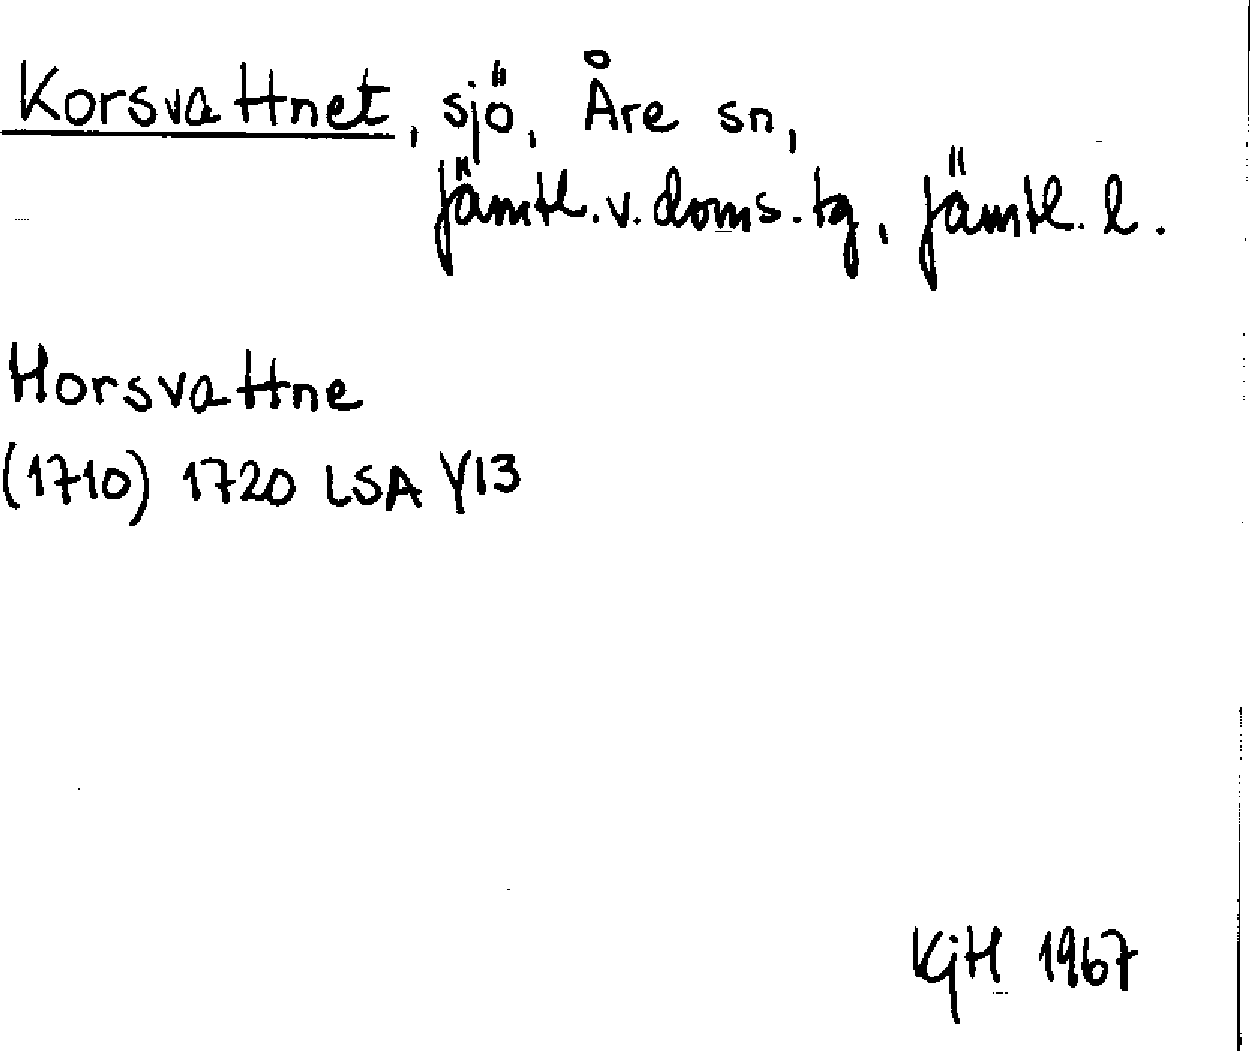 Korsvattnet, sjö, Åre sn,
Jämtl. v. doms. tg, Jämtl. l.
Horsvattne
(1710) 1720 LSA Y13
KjH 1967